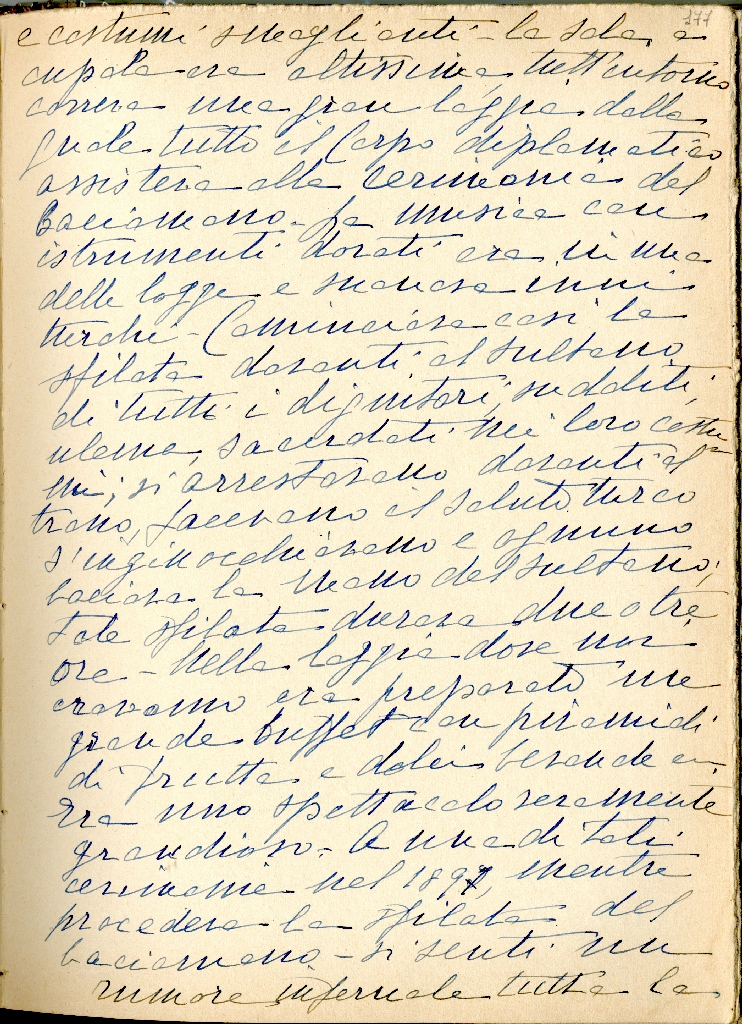 277
e costumi smaglianti - la sala a
cupola era altissima, tutt'intorno
correva una gran loggia dalla
quale tutto il Corpo diplomatico
assisteva alla cerimonia del
Baciamano - La musica con
istrumenti dorati era in una
delle logge e suonava inni
turchi - Cominciava così la
sfilata davanti al Sultano
di tutti i dignitari, sudditi,
ulema, sacerdoti nei loro costu
mi; si arrestavano davanti al
trono, facevano il saluto turco
s'inginocchiavano e ognuno
baciava la mano del Sultano;
tale sfilata durava due o tre
ore - Nella loggia dove noi
eravamo era preparato un
grande buffet con piramidi
di frutta e dolci bevande ecc.
Era uno spettacolo veramente
grandioso - A una di tali
cerimonie nel 1897, mentre
procedeva la sfilata del
baciamano - si sentì un
rumore infernale tutta la